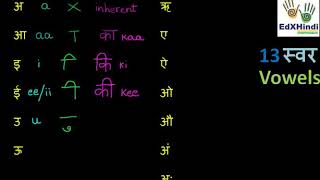 अ a × inherent ऋ
आ aa ा का kaa ऐ
इ i ि कि ki ऐ
ई ee/ii ी की kee ओ
उ u ु औ
ऊ अं
अः
EdXHindi
13 स्वर
Vowels